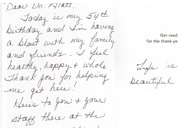 Dear Dr. Hyatt,
Today is my 54th
birthday and I'm having
a blast with my family
and friends. I feel
healthy, happy & whole
Thank you for helping
me get here!
Here's to you & your
staff there at the
Get read
for the thank-yo
Life is
beautiful